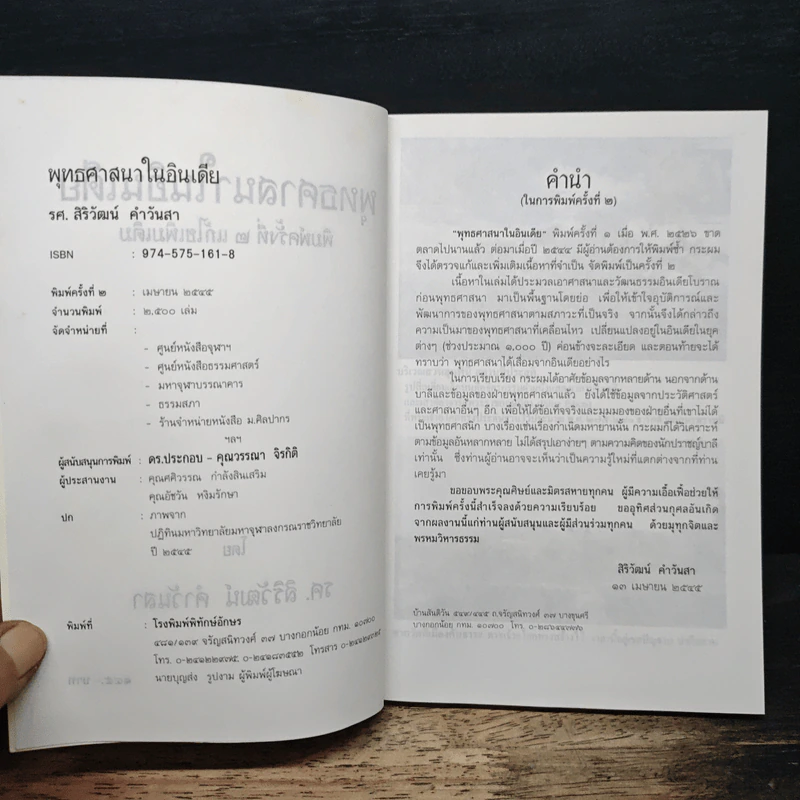 พุทธศาสนาในอินเดีย
รศ. สิริวัฒน์ คำวันสา
ISBN : 974-575-161-8
พิมพ์ครั้งที่ ๒ : เมษายน ๒๕๔๕
จำนวนพิมพ์ : ๒,๕๐๐ เล่ม
จัดจำหน่ายที่ :
- ศูนย์หนังสือจุฬาฯ
- ศูนย์หนังสือธรรมศาสตร์
- มหาจุฬาบรรณาคาร
- ธรรมสภา
- ร้านจำหน่ายหนังสือ ม.ศิลปากร
ฯลฯ
ผู้สนับสนุนการพิมพ์ : ดร.ประกอบ - คุณวรรณา จิรกิติ
ผู้ประสานงาน : คุณศศิวรรณ กำลังสินเสริม
คุณอัชวัน หงิมรักษา
ปก : ภาพจาก
ปฏิทินมหาวิทยาลัยมหาจุฬาลงกรณราชวิทยาลัย
ปี ๒๕๔๕
พิมพ์ที่ : โรงพิมพ์พิทักษ์อักษร
๔๘๑/๑๓๙ จรัญสนิทวงศ์ ๓๗ บางกอกน้อย กทม. ๑๐๗๐๐
โทร. ๐-๒๔๑๒๒๙๗๕, ๐-๒๔๑๘๓๕๕๒ โทรสาร
นายบุญส่ง รูปงาม ผู้พิมพ์ผู้โฆษณา
คำนำ
(ในการพิมพ์ครั้งที่ ๒)
"พุทธศาสนาในอินเดีย" พิมพ์ครั้งที่ ๑ เมื่อ พ.ศ. ๒๕๒๖ ขาด
ตลาดไปนานแล้ว ต่อมาเมื่อปี ๒๕๔๔ มีผู้อ่านต้องการให้พิมพ์ซ้ำ กระผม
จึงได้ตรวจแก้และเพิ่มเติมเนื้อหาที่จำเป็น จัดพิมพ์เป็นครั้งที่ ๒
เนื้อหาในเล่มได้ประมวลเอาศาสนาและวัฒนธรรมอินเดียโบราณ
ก่อนพุทธศาสนา มาเป็นพื้นฐานโดยย่อ เพื่อให้เข้าใจอุบัติการณ์และ
พัฒนาการของพุทธศาสนาตามสภาวะที่เป็นจริง จากนั้นจึงได้กล่าวถึง
ความเป็นมาของพุทธศาสนาที่เคลื่อนไหว เปลี่ยนแปลงอยู่ในอินเดียในยุค
ต่างๆ (ช่วงประมาณ ๑,๐๐๐ ปี) ค่อนข้างจะละเอียด และตอนท้ายจะได้
ทราบว่า พุทธศาสนาได้เสื่อมจากอินเดียอย่างไร
ในการเรียบเรียง กระผมได้อาศัยข้อมูลจากหลายด้าน นอกจากด้าน
บาลีและข้อมูลของฝ่ายพุทธศาสนาแล้ว ยังได้ใช้ข้อมูลจากประวัติศาสตร์
และศาสนาอื่นๆ อีก เพื่อให้ได้ข้อเท็จจริงและมุมมองของฝ่ายอื่นที่เขาไม่ได้
เป็นพุทธศาสนิก บางเรื่องเช่นเรื่องกำเนิดมหายานนั้น กระผมก็ได้วิเคราะห์
ตามข้อมูลอันหลากหลาย ไม่ได้สรุปเอาง่ายๆ ตามความคิดของนักปราชญ์บาลี
เท่านั้น ซึ่งท่านผู้อ่านอาจจะเห็นว่าเป็นความรู้ใหม่ที่แตกต่างจากที่ท่าน
เคยรู้มา
ขอขอบพระคุณศิษย์และมิตรสหายทุกคน ผู้มีความเอื้อเฟื้อช่วยให้
การพิมพ์ครั้งนี้สำเร็จลงด้วยความเรียบร้อย ขออุทิศส่วนกุศลอันเกิด
จากผลงานนี้แก่ท่านผู้สนับสนุนและผู้มีส่วนร่วมทุกคน ด้วยมุทุกจิตและ
พรหมวิหารธรรม
สิริวัฒน์ คำวันสา
๑๓ เมษายน ๒๕๔๕
บ้านสันติวัน ๕๔๙/๔๔๕ ถ.จรัญสนิทวงศ์ ๓๗ บางขุนศรี
บางกอกน้อย กทม. ๑๐๗๐๐ โทร.